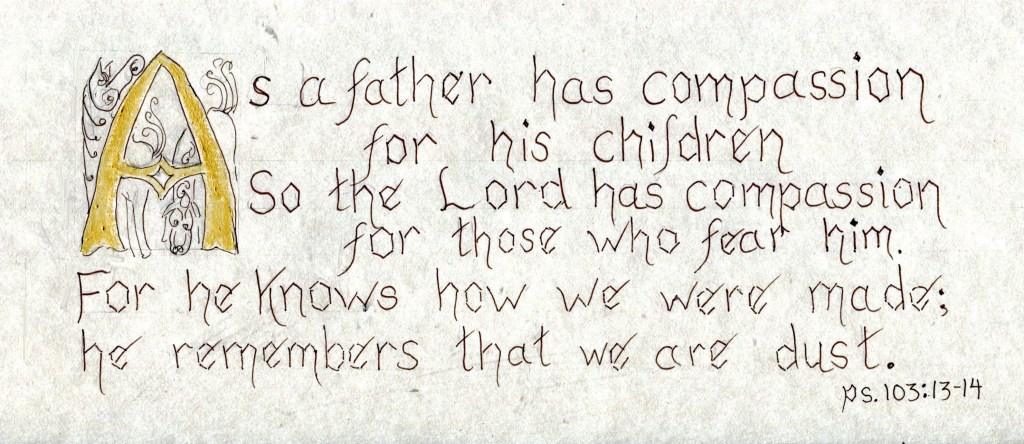 As a father has compassion
for his children
So the Lord has compassion
for those who fear him.
For he knows how we were made;
he remembers that we are dust.
ps. 103:13-14